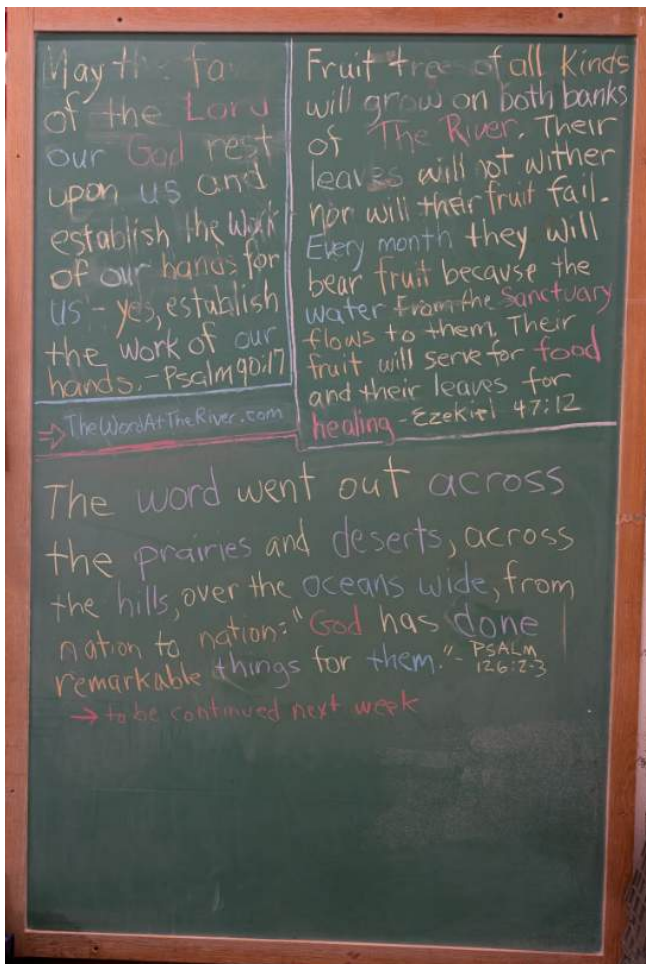 May the fa
of the Lord
our God rest
upon us and
establish the work
of our hands for
us - yes, establish
the work of our
hands. - Psalm 90:17
→ TheWordAtTheRiver.com
Fruit trees of all kinds
will grow on both banks
of The River. Their
leaves will not wither
nor will their fruit fail.
Every month they will
bear fruit because the
water from the Sanctuary
flows to them. Their
fruit will serve for food
and their leaves for
healing - Ezekiel 47:12
The word went out across
the prairies and deserts, across
the hills, over the oceans wide, from
nation to nation: "God has done
remarkable things for them." - PSALM
126:2-3
→ to be continued next week